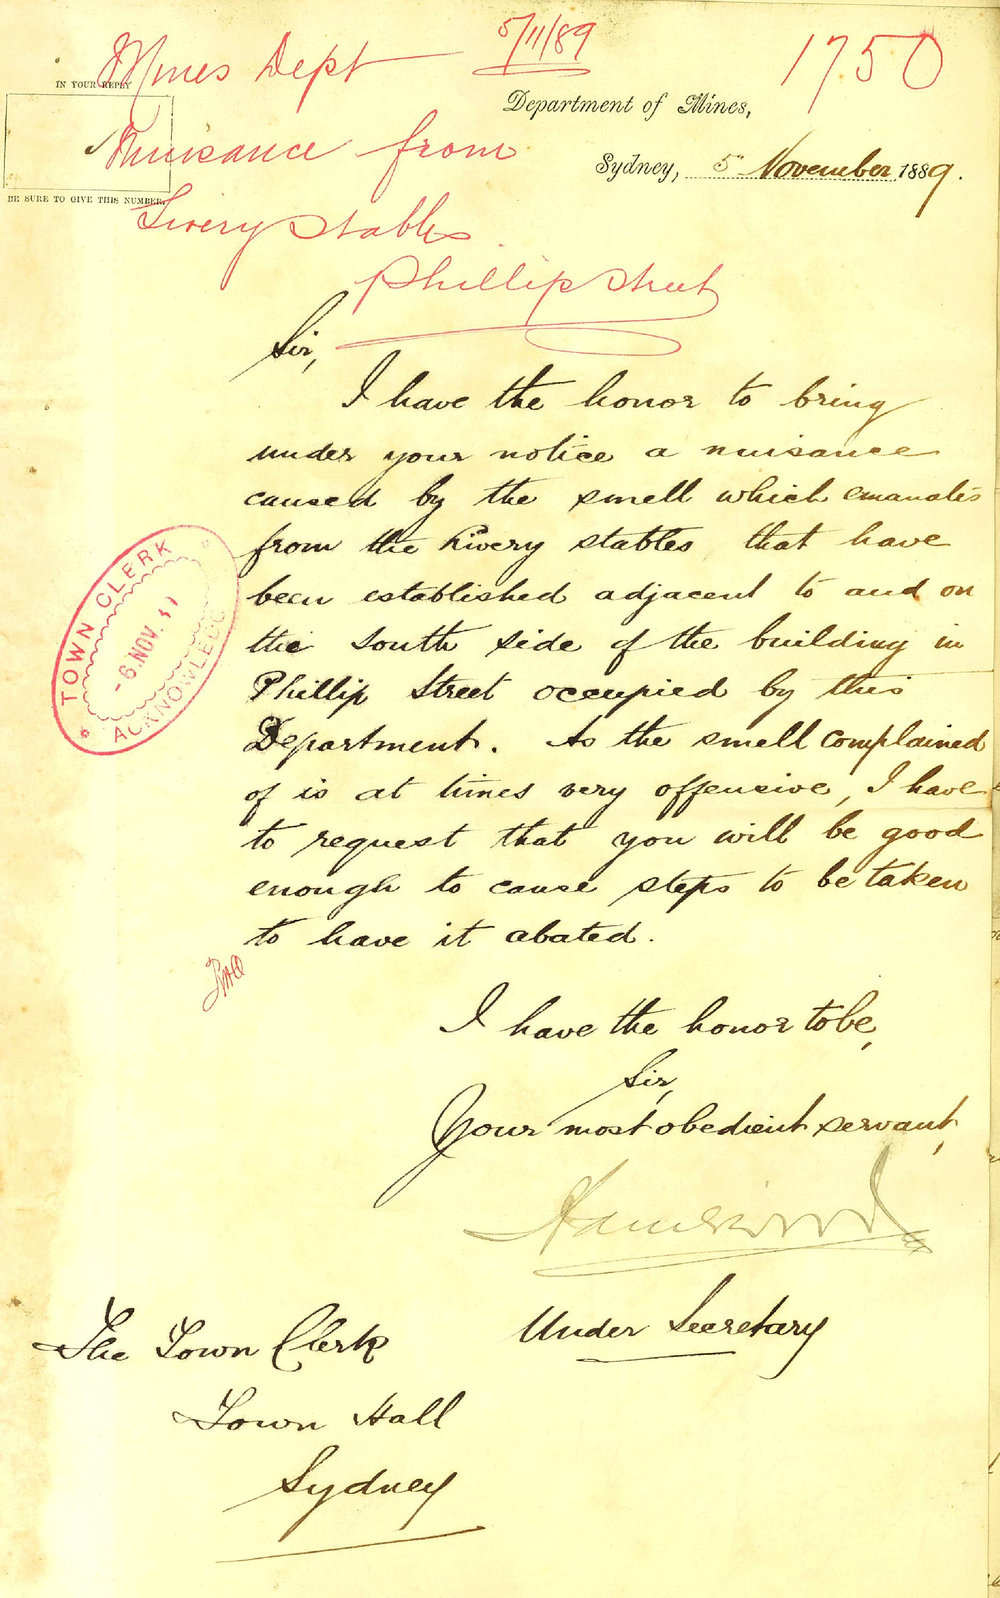 5/11/89
1750
Mines Dept
IN YOUR REPLY
Department of Mines,
Nuisance from
Sydney, 5 November 1889.
BE SURE TO GIVE THIS NUMBER.
Livery Stables
Phillip Street
Sir,
I have the honor to bring
under your notice a nuisance
caused by the smell which emanates
from the Livery stables that have
been established adjacent to and on
the south side of the building in
Phillip Street occupied by this
Department. As the smell complained
of is at times very offensive, I have
to request that you will be good
enough to cause steps to be taken
to have it abated.
TOWN CLERK
6 NOV.
ACKNOWLEDG
I have the honor to be,
Sir,
Your most obedient servant,
Under Secretary
The Town Clerk
Town Hall
Sydney